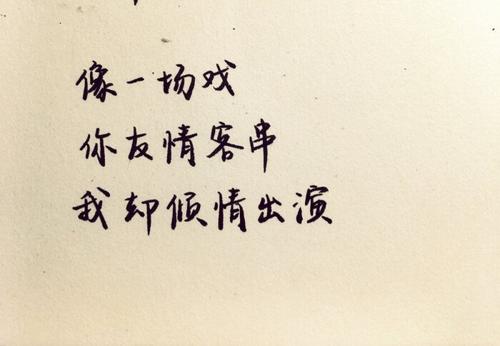 像一场戏
你友情客串
我却倾情出演